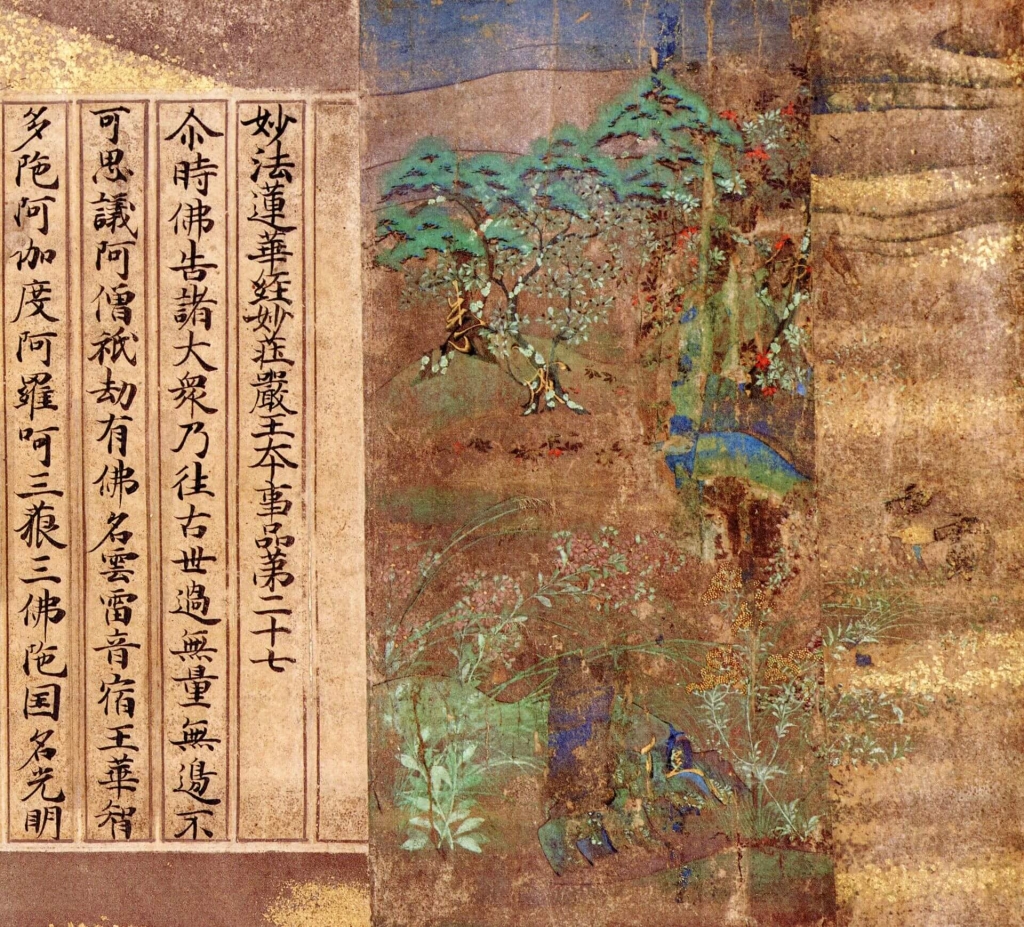 妙法蓮華経妙荘嚴王本事品苐二十七
尒時佛告諸大衆乃往古世過無量無邊不
可思議阿僧祇劫有佛名雲雷音宿王華智
多陁阿伽度阿羅呵三藐三佛陁国名光明